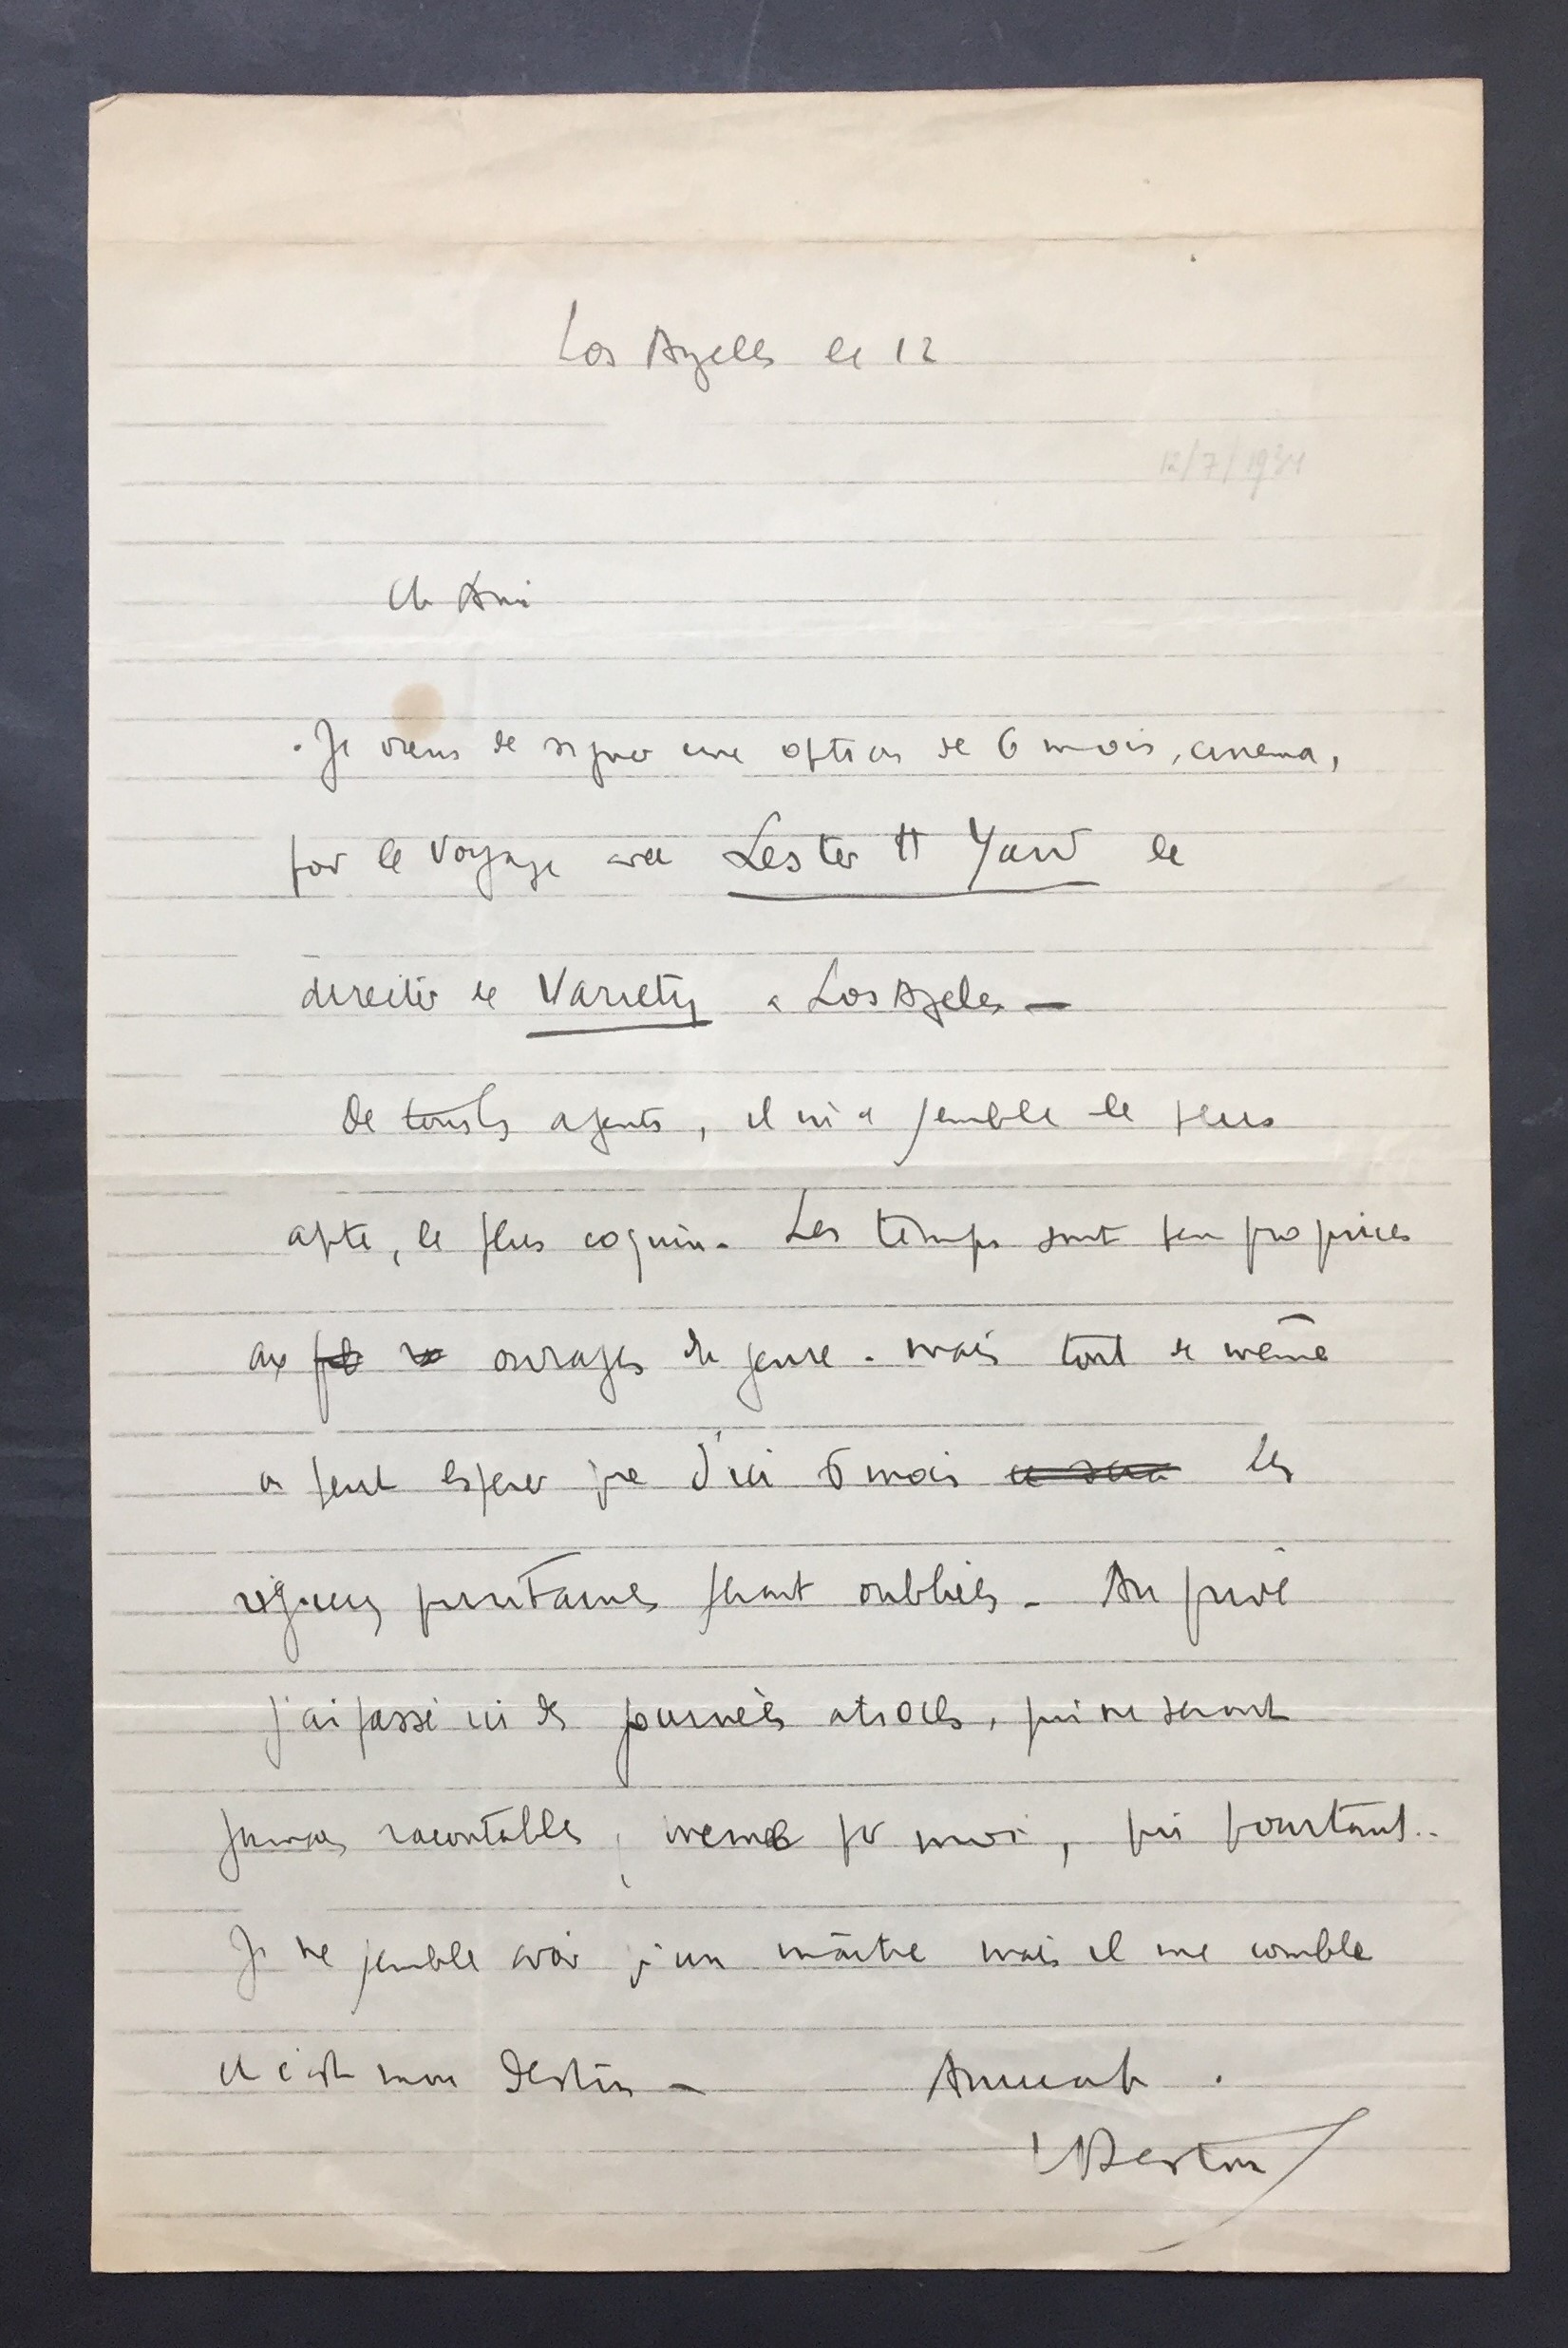 Los Angeles le 12
12/7/1934
Ch Ami
Je viens de signer une option de 6 mois, cinema,
pour le Voyage avec Lester H Yard le
directeur de Variety à Los Angeles —
De tous les agents, il m'a semblé le plus
apte, le plus coquin. Les temps sont peu propices
aux ouvrages du genre. mais tout de même
on peut espérer que d'ici 6 mois les
rigueurs puritaines seront oubliées — Au privé
j'ai passé ici des journées atroces, qui ne seront
jamais racontables, même par moi, qui pourtant..
Je ne semble avoir qu'un maître mais il me comble
et c'est mon Destin — Amicalt.
LDestouches